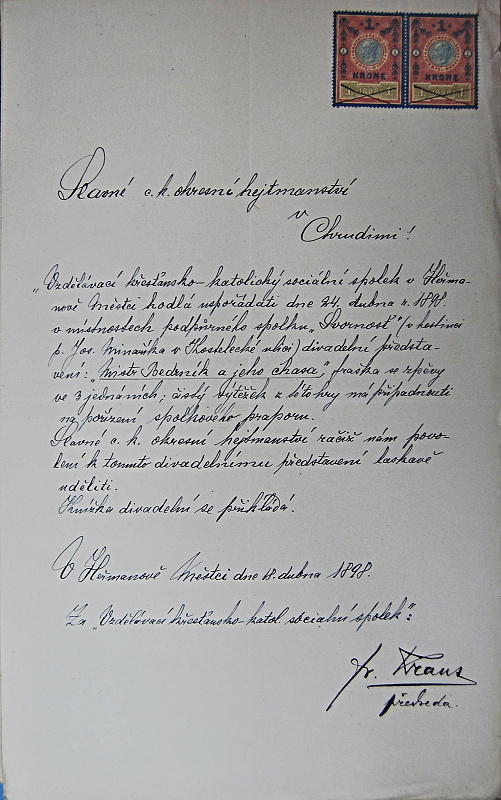 1 1
KRONE KRONE
1 1898 1 1 1898 1
Slavné c. k. okresní hejtmanství
v
Chrudimi!
„Vzdělávací křesťansko-katolický sociální spolek v Heřma-
nově Městci hodlá uspořádati dne 24. dubna r. 1898.
v místnostech podpůrného spolku „Svornost" (v hostinci
p. Jos. Minaříka v Kostelecké ulici) divadelní představ-
vení: „Mistr Bedrník a jeho chasa", fraška se zpěvy
ve 3 jednáních; čistý výtěžek z této hry má připadnouti
na pořízení spolkového praporu.
Slavné c. k. okresní hejtmanství račiž nám povo-
lení k tomuto divadelnímu představení laskavě
uděliti.
Knížka divadelní se přikládá.
V Heřmanově Městci dne 18. dubna 1898.
Za „Vzdělávací křesťansko-katol. sociální spolek":
Fr. Kraus
předseda.